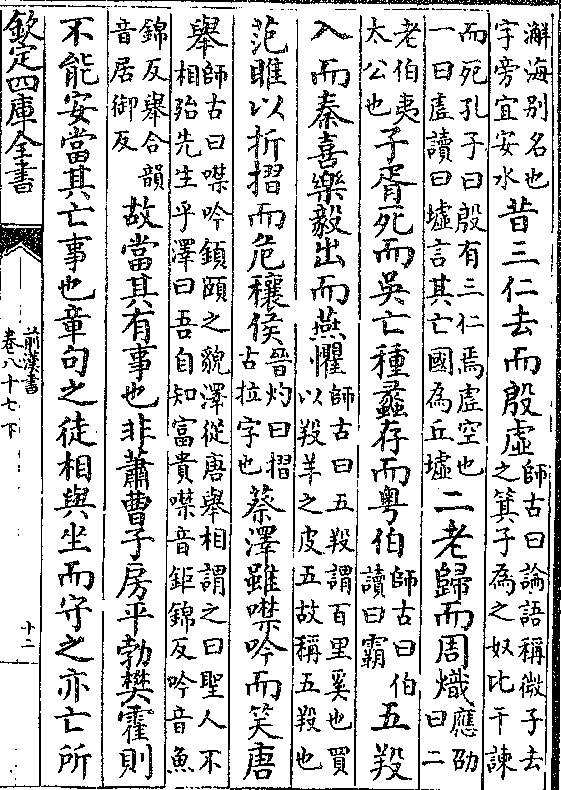 澥海别名也字旁宜安水昔三仁去而殷虛師古曰論語稱微子去之箕子為之奴比干諫
而死孔子曰殷有三仁焉虛空也一曰虛讀曰墟言其亡國為丘墟二老歸而周熾應劭曰二
老伯夷太公也子胥死而吳亡種蠡存而粤伯師古曰伯讀曰霸五羖
入而秦喜樂毅出而燕懼師古曰五羖謂百里奚也買以羖羊之皮五故稱五羖也
范睢以折摺而危穰侯晉灼曰摺古拉字也蔡澤雖噤吟而笑唐
舉師古曰噤吟顉頤之貌澤從唐舉相謂之曰聖人不相殆先生乎澤曰吾自知富貴噤音鉅錦反吟音魚
錦反舉合韻音居御反故當其有事也非蕭曹子房平勃樊霍則
不能安當其亡事也章句之徒相與坐而守之亦亡所
欽定四庫全書
前漢書
卷八十七下
十二